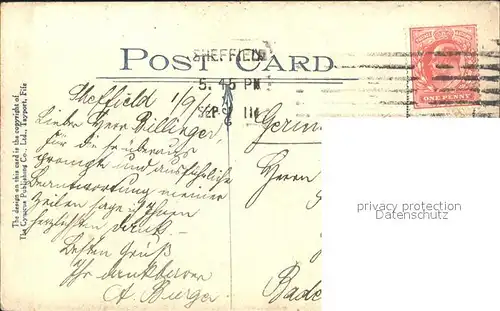 POST CARD
SHEFFIELD
5.45 PM
SEP
11
ONE PENNY
The design on this card is the copyright of
The Cynicus Publishing Co., Ltd., Tayport, Fife
Sheffield 1/9
Lieber Herr Dillinger,
Für die so überaus
prompte und ausführliche
Beantwortung meiner
Zeilen sage ich Ihnen
herzlichsten Dank.
Besten Gruß
Ihr dankbarer
A. Burger
Germ
Herrn
Bade
privacy protection
Datenschutz